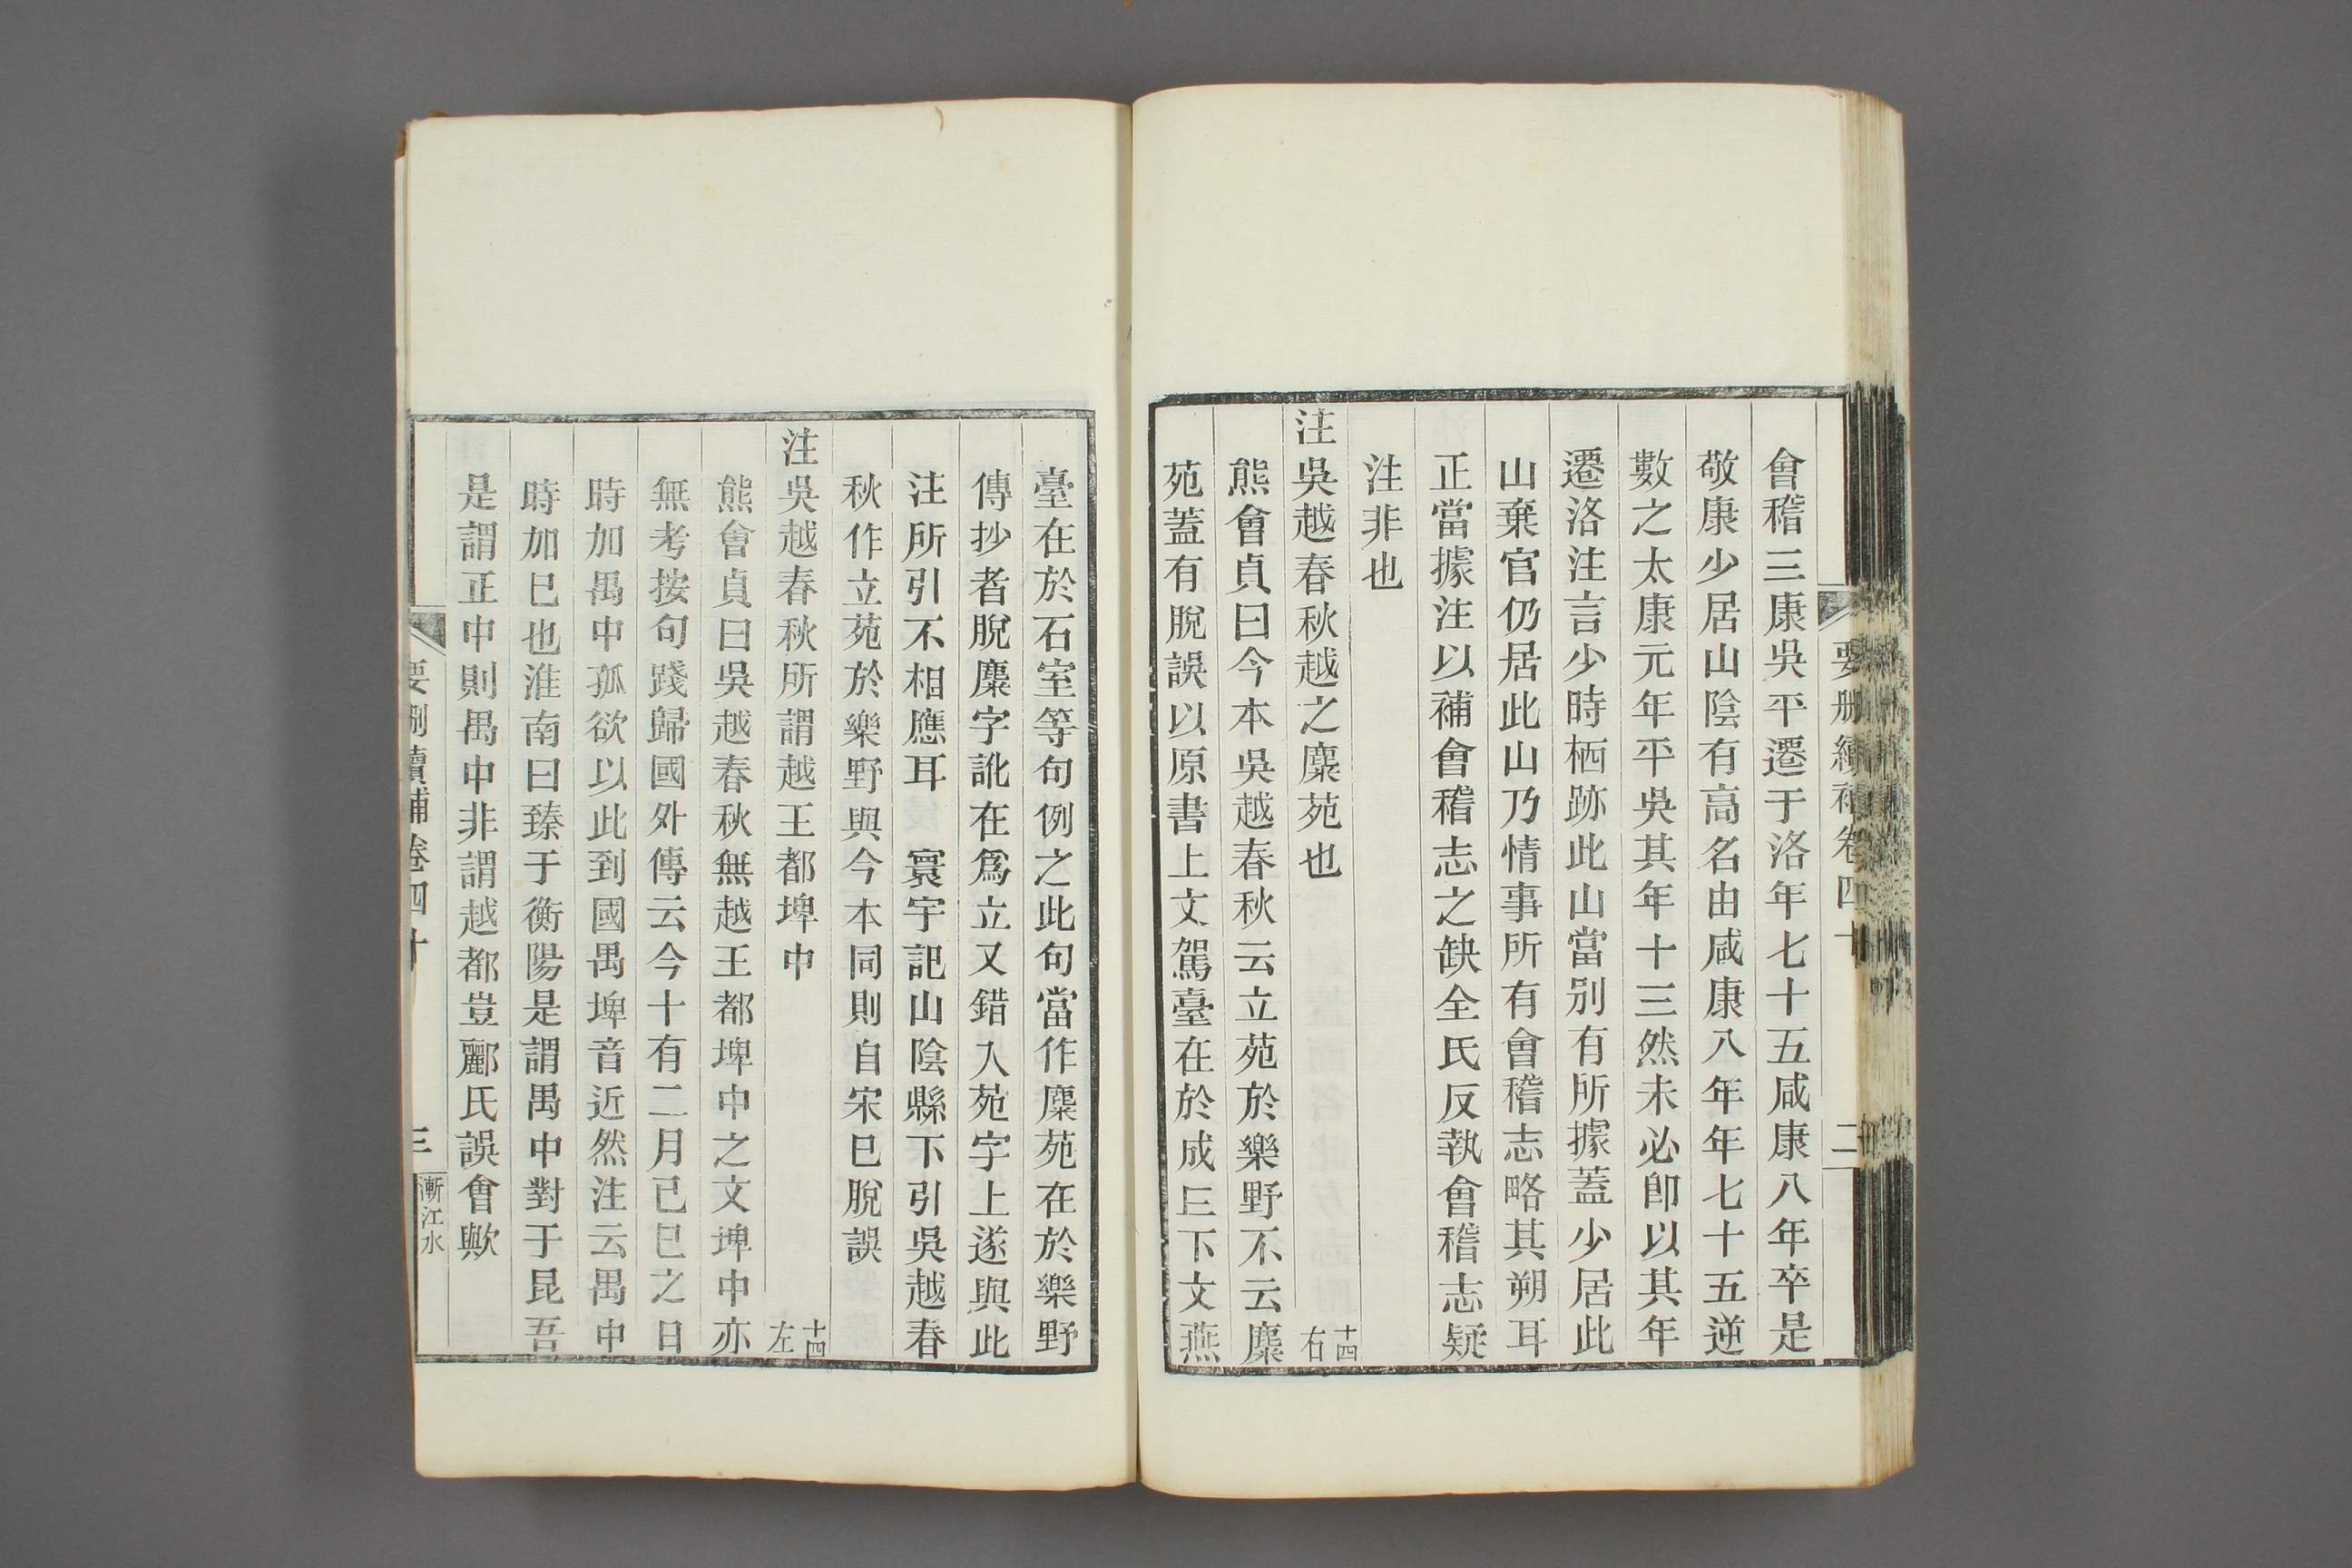 要刪續補卷四十
二
會稽三康吳平遷于洛年七十五咸康八年卒是
敬康少居山陰有高名由咸康八年年七十五逆
數之太康元年平吳其年十三然未必卽以其年
遷洛注言少時栖跡此山當別有所據蓋少居此
山棄官仍居此山乃情事所有會稽志略其朔耳
正當據注以補會稽志之缺全氏反執會稽志疑
注非也
注吳越春秋越之麋苑也 十四右
熊會貞曰今本吳越春秋云立苑於樂野不云麋
苑蓋有脫誤以原書上文駕臺在於成曰下文燕
臺在於石室等句例之此句當作麋苑在於樂野
傳抄者脫麋字訛在爲立又錯入苑字上遂與此
注所引不相應耳 寰宇記山陰縣下引吳越春
秋作立苑於樂野與今本同則自宋已脫誤
注吳越春秋所謂越王都埤中 十四左
熊會貞曰吳越春秋無越王都埤中之文埤中亦
無考按句踐歸國外傳云今十有二月己巳之日
時加禺中孤欲以此到國禺埤音近然注云禺中
時加巳也淮南曰臻于衡陽是謂禺中對于昆吾
是謂正中則禺中非謂越都豈酈氏誤會歟
要刪續補卷四十
三
漸江水